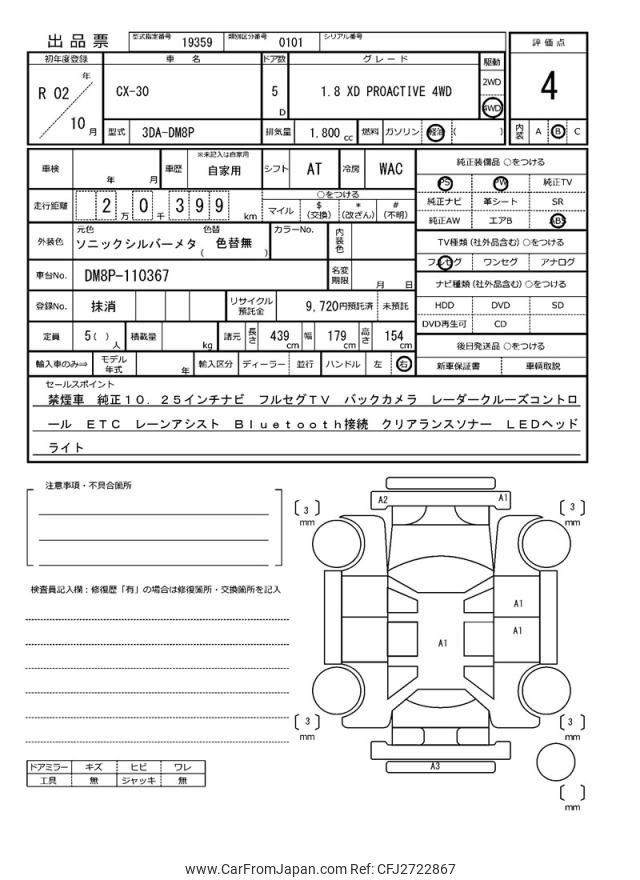 出品票 型式指定番号 19359 類別区分番号 0101 シリアル番号
評価点
4
内装 A B C
初年度登録 車名 ドア数 グレード 駆動
R 02 年 10 月 CX-30 5 D 1.8 XD PROACTIVE 4WD 2WD 4WD
型式 3DA-DM8P 排気量 1,800 cc 燃料 ガソリン 軽油 ( )
車検 年 月 車歴 ※未記入は自家用 自家用 シフト AT 冷房 WAC
走行距離 2 万 0 千 3 9 9 km
○をつける
マイル $ (交換) * (改ざん) # (不明)
外装色 元色 ソニックシルバーメタ 色替 ( 色替無 ) カラーNo. 内装色
車台No. DM8P-110367 名変期限 月 日
登録No. 抹消 リサイクル預託金 9,720円預託済 未預託
定員 5( ) 人 積載量 kg 諸元 長さ 439 cm 幅 179 cm 高さ 154 cm
輸入車のみ⇒ モデル年式 年 輸入区分 ディーラー 並行 ハンドル 左 右
純正装備品 ○をつける
PS PW 純正TV
純正ナビ 革シート SR
純正AW エアB ABS
TV種類 (社外品含む) ○をつける
フルセグ ワンセグ アナログ
ナビ種類 (社外品含む) ○をつける
HDD DVD SD
DVD再生可 CD
後日発送品 ○をつける
新車保証書 車輌取説
セールスポイント
禁煙車 純正10．25インチナビ フルセグTV バックカメラ レーダークルーズコントロ
ール ETC レーンアシスト Bluetooth接続 クリアランスソナー LEDヘッド
ライト
注意事項・不具合箇所
検査員記入欄：修復歴「有」の場合は修復箇所・交換箇所を記入
ドアミラー キズ ヒビ ワレ
工具 無 ジャッキ 無
A2 A1
〔 3 〕 mm
〔 3 〕 mm
A1
A1
A1
〔 3 〕 mm
〔 3 〕 mm
A3
〔 〕 mm
www.CarFromJapan.com Ref: CFJ2722867